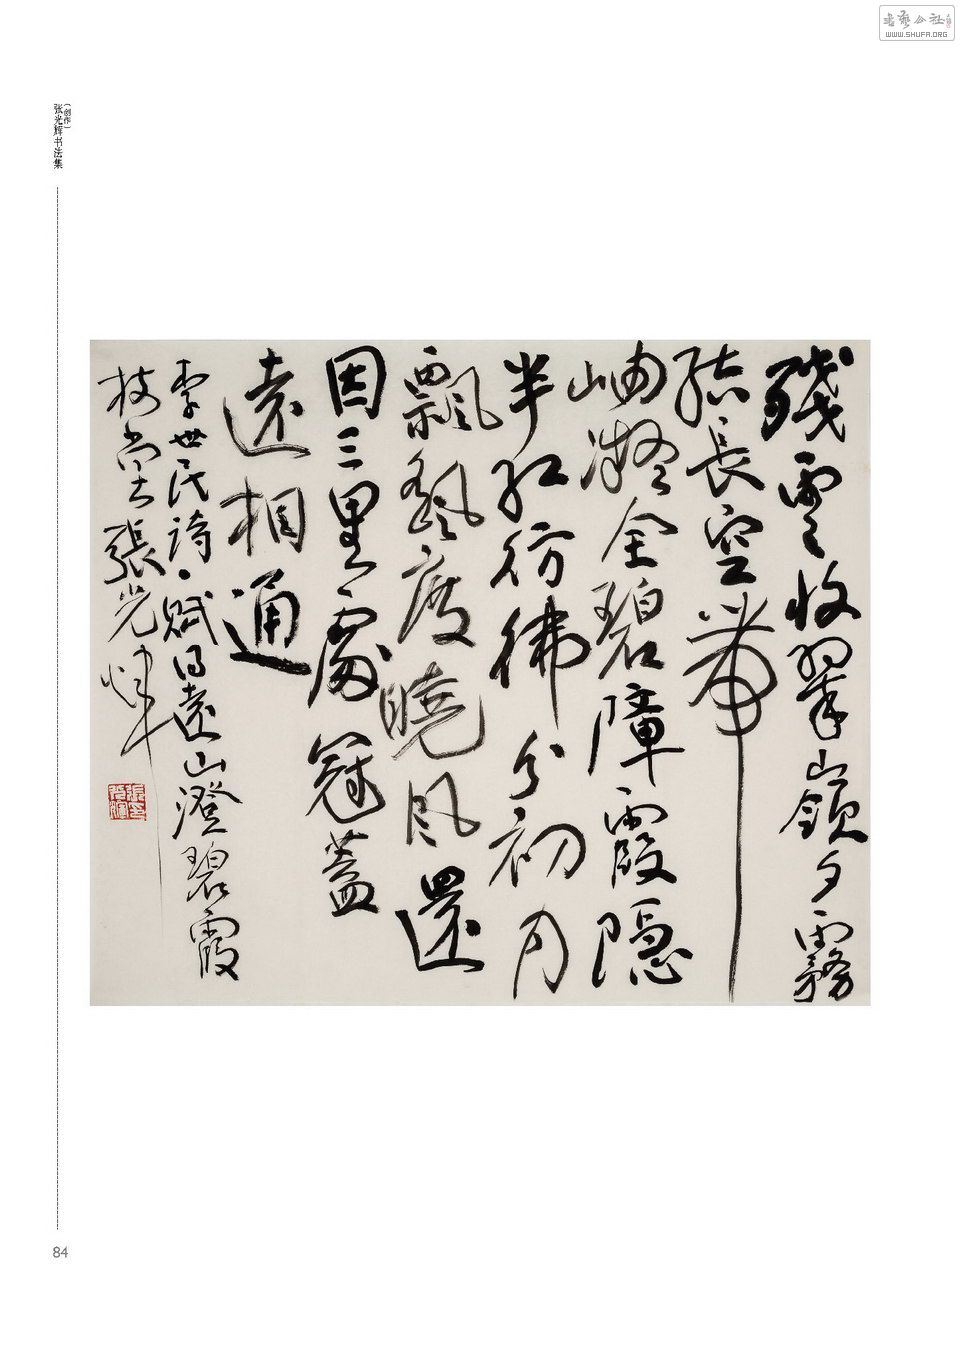 书艺公社
WWW.SHUFA.ORG
(创作)
张光辉书法集
殘雲收翠嶺夕霧
結長空帶
岫凝全碧障霞隐
半紅彷彿分初月
飄飖度曉風還
因三里處冠蓋
遠相通
李世民詩·賦得遠山澄碧霞
張光煇
84